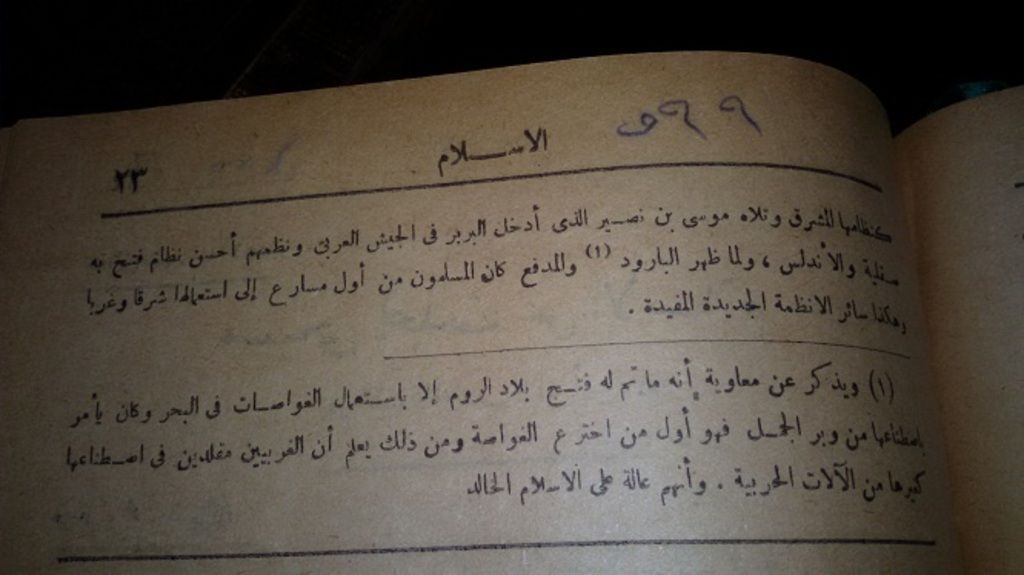 الاسلام
٢٣
كنظامها للمشرق وتلاه موسى بن نصير الذى أدخل البربر فى الجيش العربى ونظمهم أحسن نظام فتح به
صقلية والأندلس ، ولما ظهر البارود (١) والمدفع كان المسلمون من أول مسارع إلى استعمالها شرقا وغربا
وهكذا سائر الانظمة الجديدة المفيدة .
(١) ويذكر عن معاوية أنه ما تم له فتح بلاد الروم إلا باستعمال الغواصات فى البحر وكان يأمر
باصطناعها من وبر الجمل فهو أول من اخترع الغواصة ومن ذلك يعلم أن الغربيين مقلدين فى اصطناعها
كغيرها من الآلات الحربية . وأنهم عالة على الاسلام الخالد